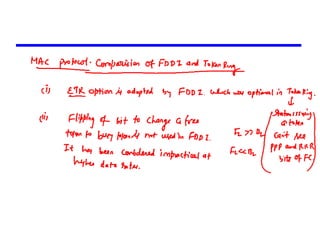 MAC protocol. Comparision of FDDI and Token Ring
(i) ETR option is adopted by FDDI. which was optional in Token Ring.
↓
(ii) Flipping of bit to change a free
token to busy token is not used in FDDI.
It has been considered impractical at
higher data rates.
F2 >> B2
F2 << B2
Station issuing
a token
can't see
PPP and RRR
bits of FC